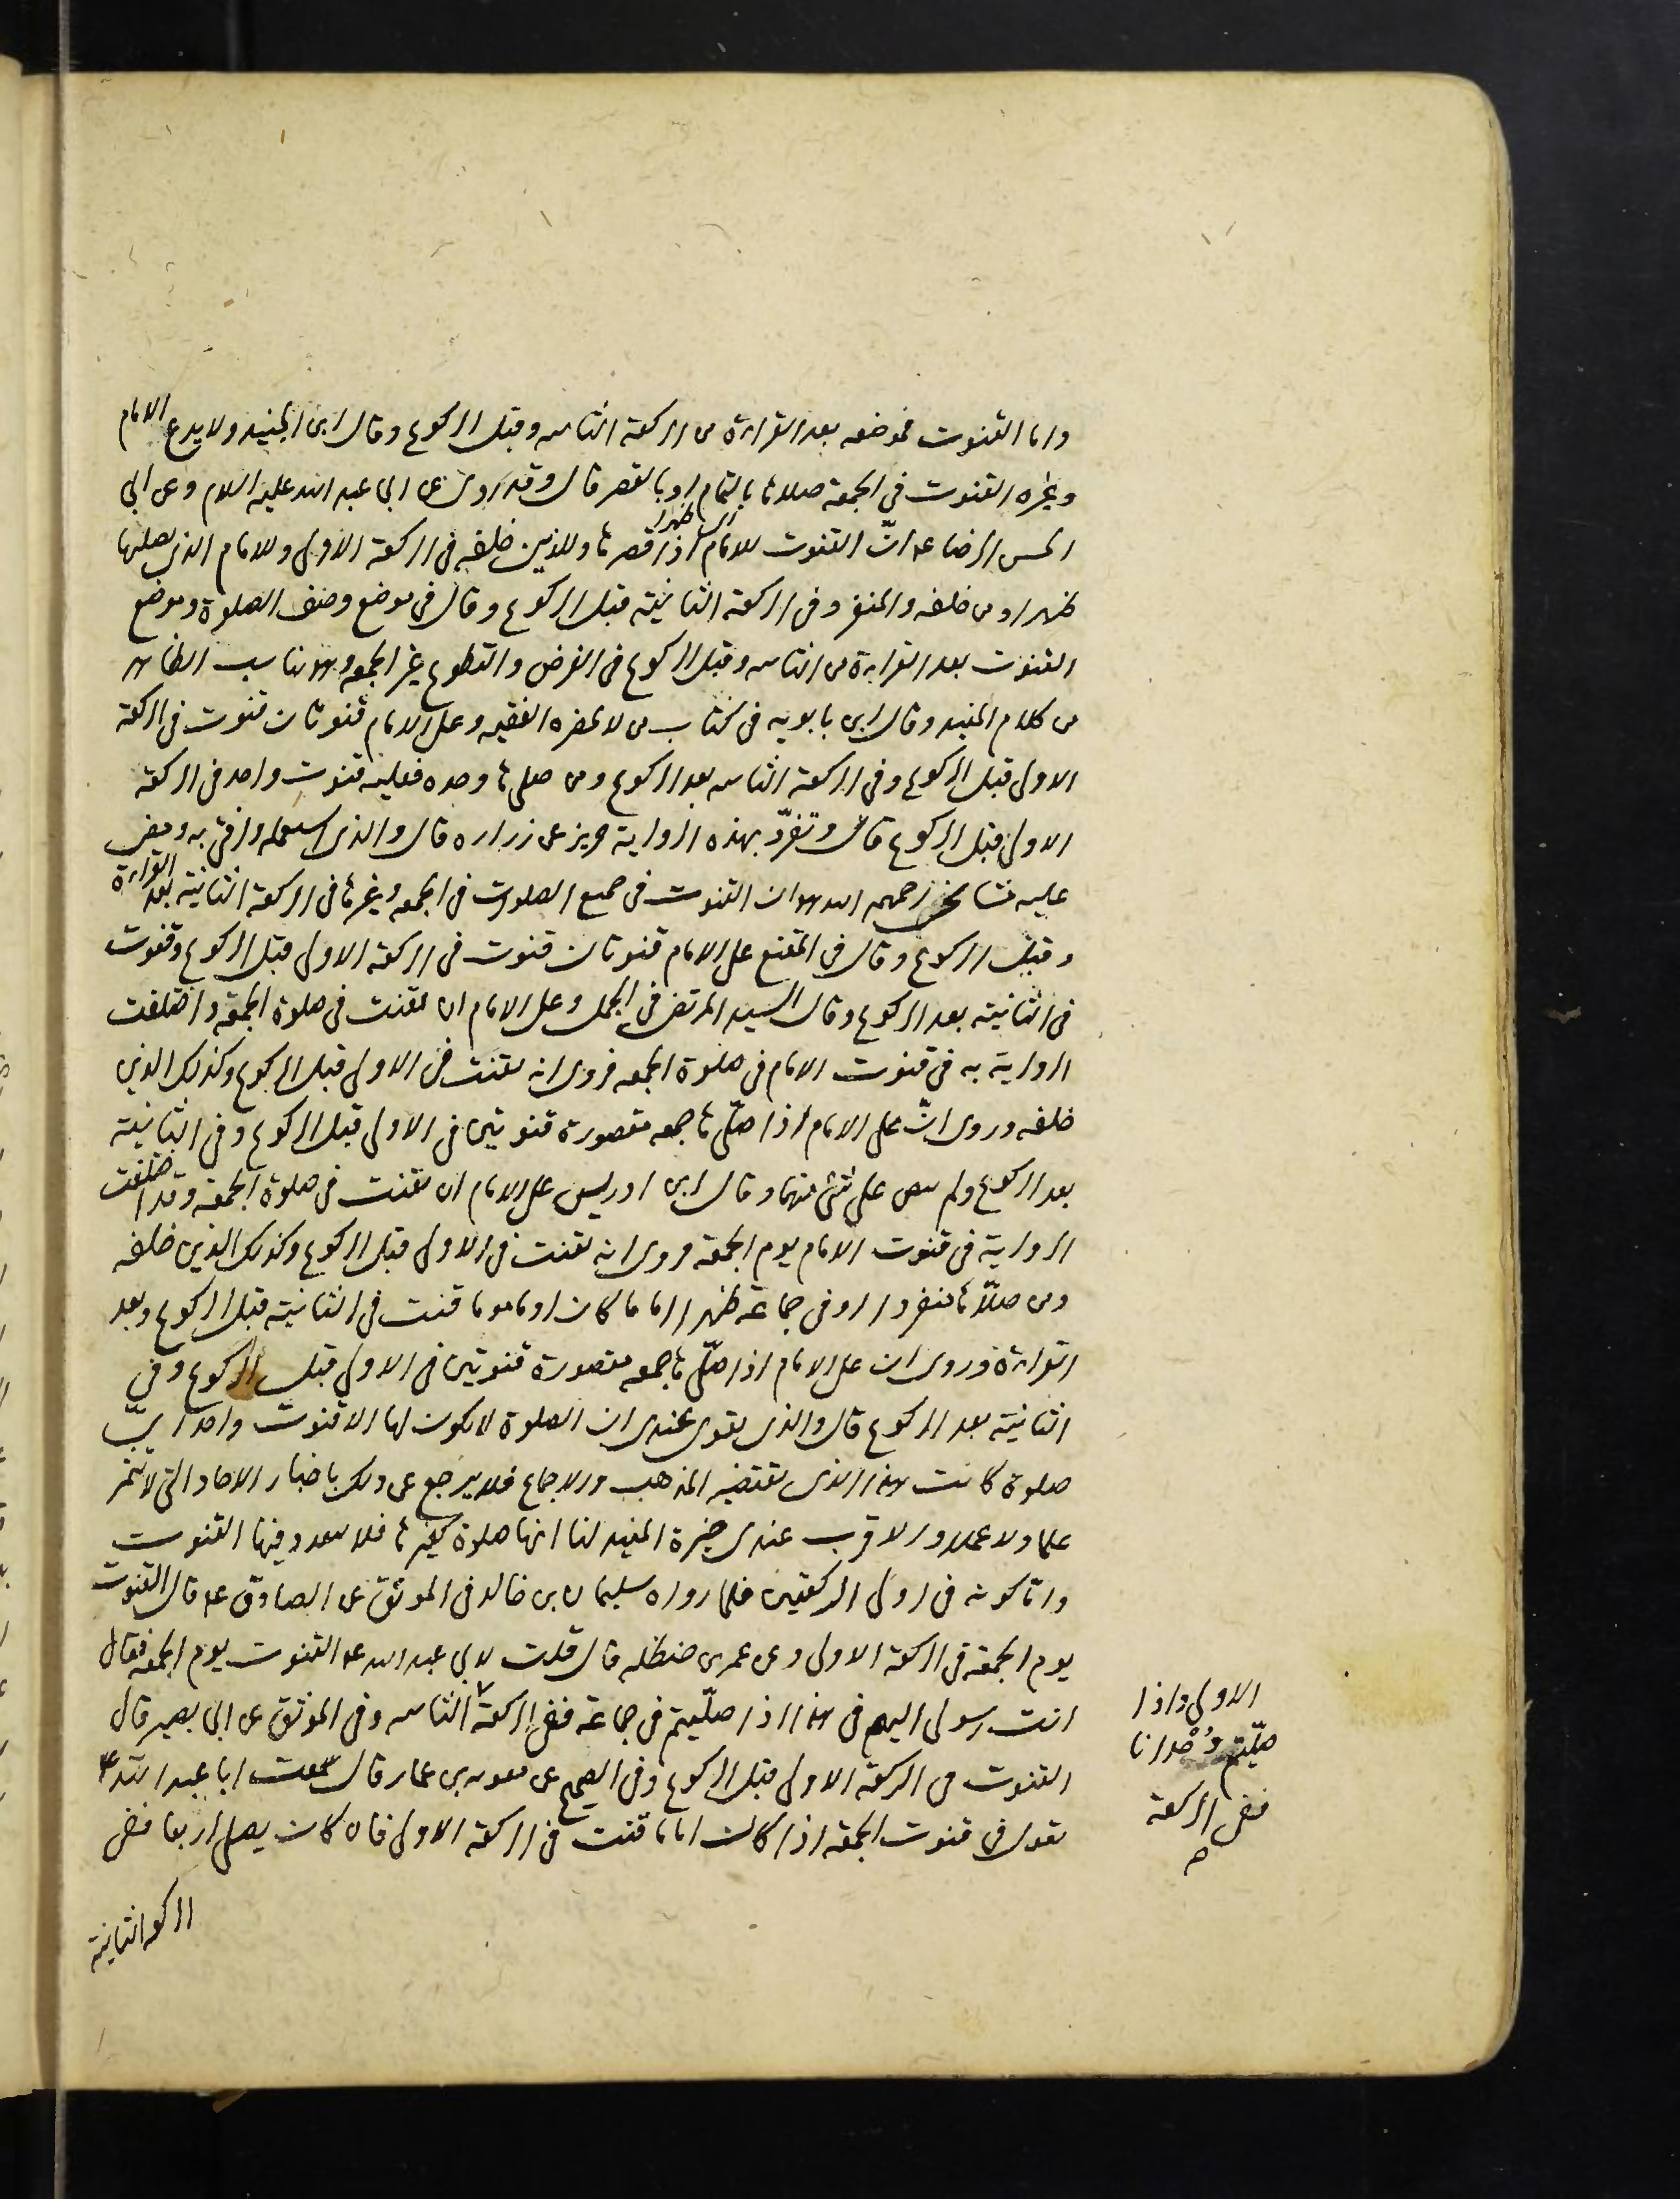 واما القنوت فموضعه بعد القراءة من الركعة الثانيه وقبل الركوع وقال ابن الجنيد ولا يدع الامام
وغيره القنوت في الجمعة صلاها بالتمام او بالقصر قال وقد روى عن ابي عبد الله عليه السلام وعن ابي
الحسن الرضا عه انّ القنوت للامام اذا قصرها وللذين خلفه في الركعة الاولى وللامام الذي يصليها
ظهرا ومن خلفه والمنفرد في الركعة الثانية قبل الركوع وقال في موضع وصف الصلوة وموضع
القنوت بعد القراءة من الثانيه وقبل الركوع في الفرض والتطوع غير الجمعه وهو يناسب الظاهر
من كلام المفيد وقال ابن بابويه في كتاب من لا يحضره الفقيه وعلى الامام قنوتان قنوت في الركعة
الاولى قبل الركوع وفي الركعة الثانيه بعد الركوع ومن صلى ها وحده فعليه قنوت واحد في الركعة
الاولى قبل الركوع قال وتفرّد بهذه الرواية حريز عن زراره قال والذي استعمله وافتي به ومضى
عليه مشايخي رحمهم الله هو ان القنوت في جميع الصلوات في الجمعه وغيرها في الركعة الثانية بعد القراءة
وقبل الركوع وقال في المقنع على الامام قنوتان قنوت في الركعة الاولى قبل الركوع وقنوت
في الثانية بعد الركوع وقال السيد المرتضى في الجمل وعلى الامام ان يقنت في صلوة الجمعة واختلفت
الرواية به في قنوت الامام في صلوة الجمعه فروى انه يقنت في الاولى قبل الركوع وكذلك الذين
خلفه وروى انّ على الامام اذا صلّى ها جمعه مقصورة قنوتين في الاولى قبل الركوع وفي الثانية
بعد الركوع ولم ينص على شئ منهما وقال ابن ادريس على الامام ان يقنت في صلوة الجمعة وقد اختلفت
الرواية في قنوت الامام يوم الجمعة فروى انه يقنت في الاولى قبل الركوع وكذلك الذين خلفه
ومن صلّاها منفردا او في جماعة ظهرا اماما كان او ماموما قنت في الثانية قبل الركوع وبعد
القراءة وروى ان على الامام اذا صلّى ها جمعه مقصورة قنوتين في الاولى قبل الركوع وفي
الثانية بعد الركوع قال والذي يقوى عندى ان الصلوة لا يكون لها الا قنوت واحد ايّ
صلوة كانت هذا الذى يقتضيه المذهب والاجماع فلا يرجع عن ذلك باخبار الاحاد التى لا تثمر
علما ولا عملا والاقرب عندى خيرة المفيد لنا انها صلوة كغيرها فلا يتعدد فيها القنوت
واما كونه في اولى الركعتين فلما رواه سليمان بن خالد في الموثق عن الصادق عه قال القنوت
يوم الجمعة في الركعة الاولى وعن عمر بن حنظله قال قلت لابي عبد الله عه القنوت يوم الجمعه فقال
انت رسولى اليهم في هذا اذا صلّيتم في جماعة ففي الركعة الثانيه وفي الموثق عن ابي بصير قال
القنوت في الركعة الاولى قبل الركوع وفي الصحيح عن معويه بن عمار قال سمعت ابا عبد الله عه
يقول في قنوت الجمعة اذا كان اماما قنت في الركعة الاولى فان كان يصلي اربعا ففي
الركعه الثانية
الاولى واذا
صلّيتم وُحْدانا
ففي الركعة